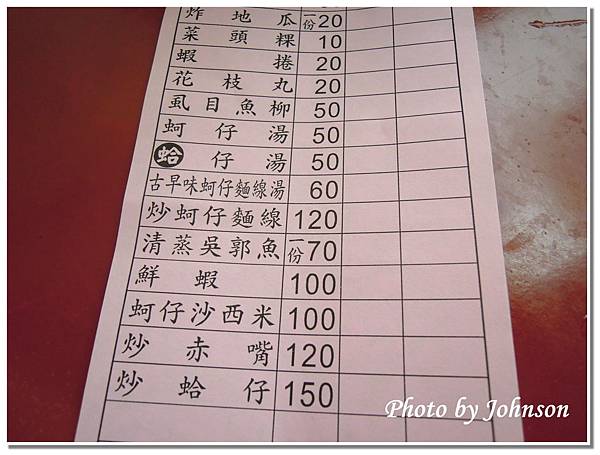 炸地瓜 一份20
菜頭粿 10
蝦捲 20
花枝丸 20
虱目魚柳 50
蚵仔湯 50
蛤仔湯 50
古早味蚵仔麵線湯 60
炒蚵仔麵線 120
清蒸吳郭魚 一份70
鮮蝦 100
蚵仔沙西米 100
炒赤嘴 120
炒蛤仔 150
Photo by Johnson